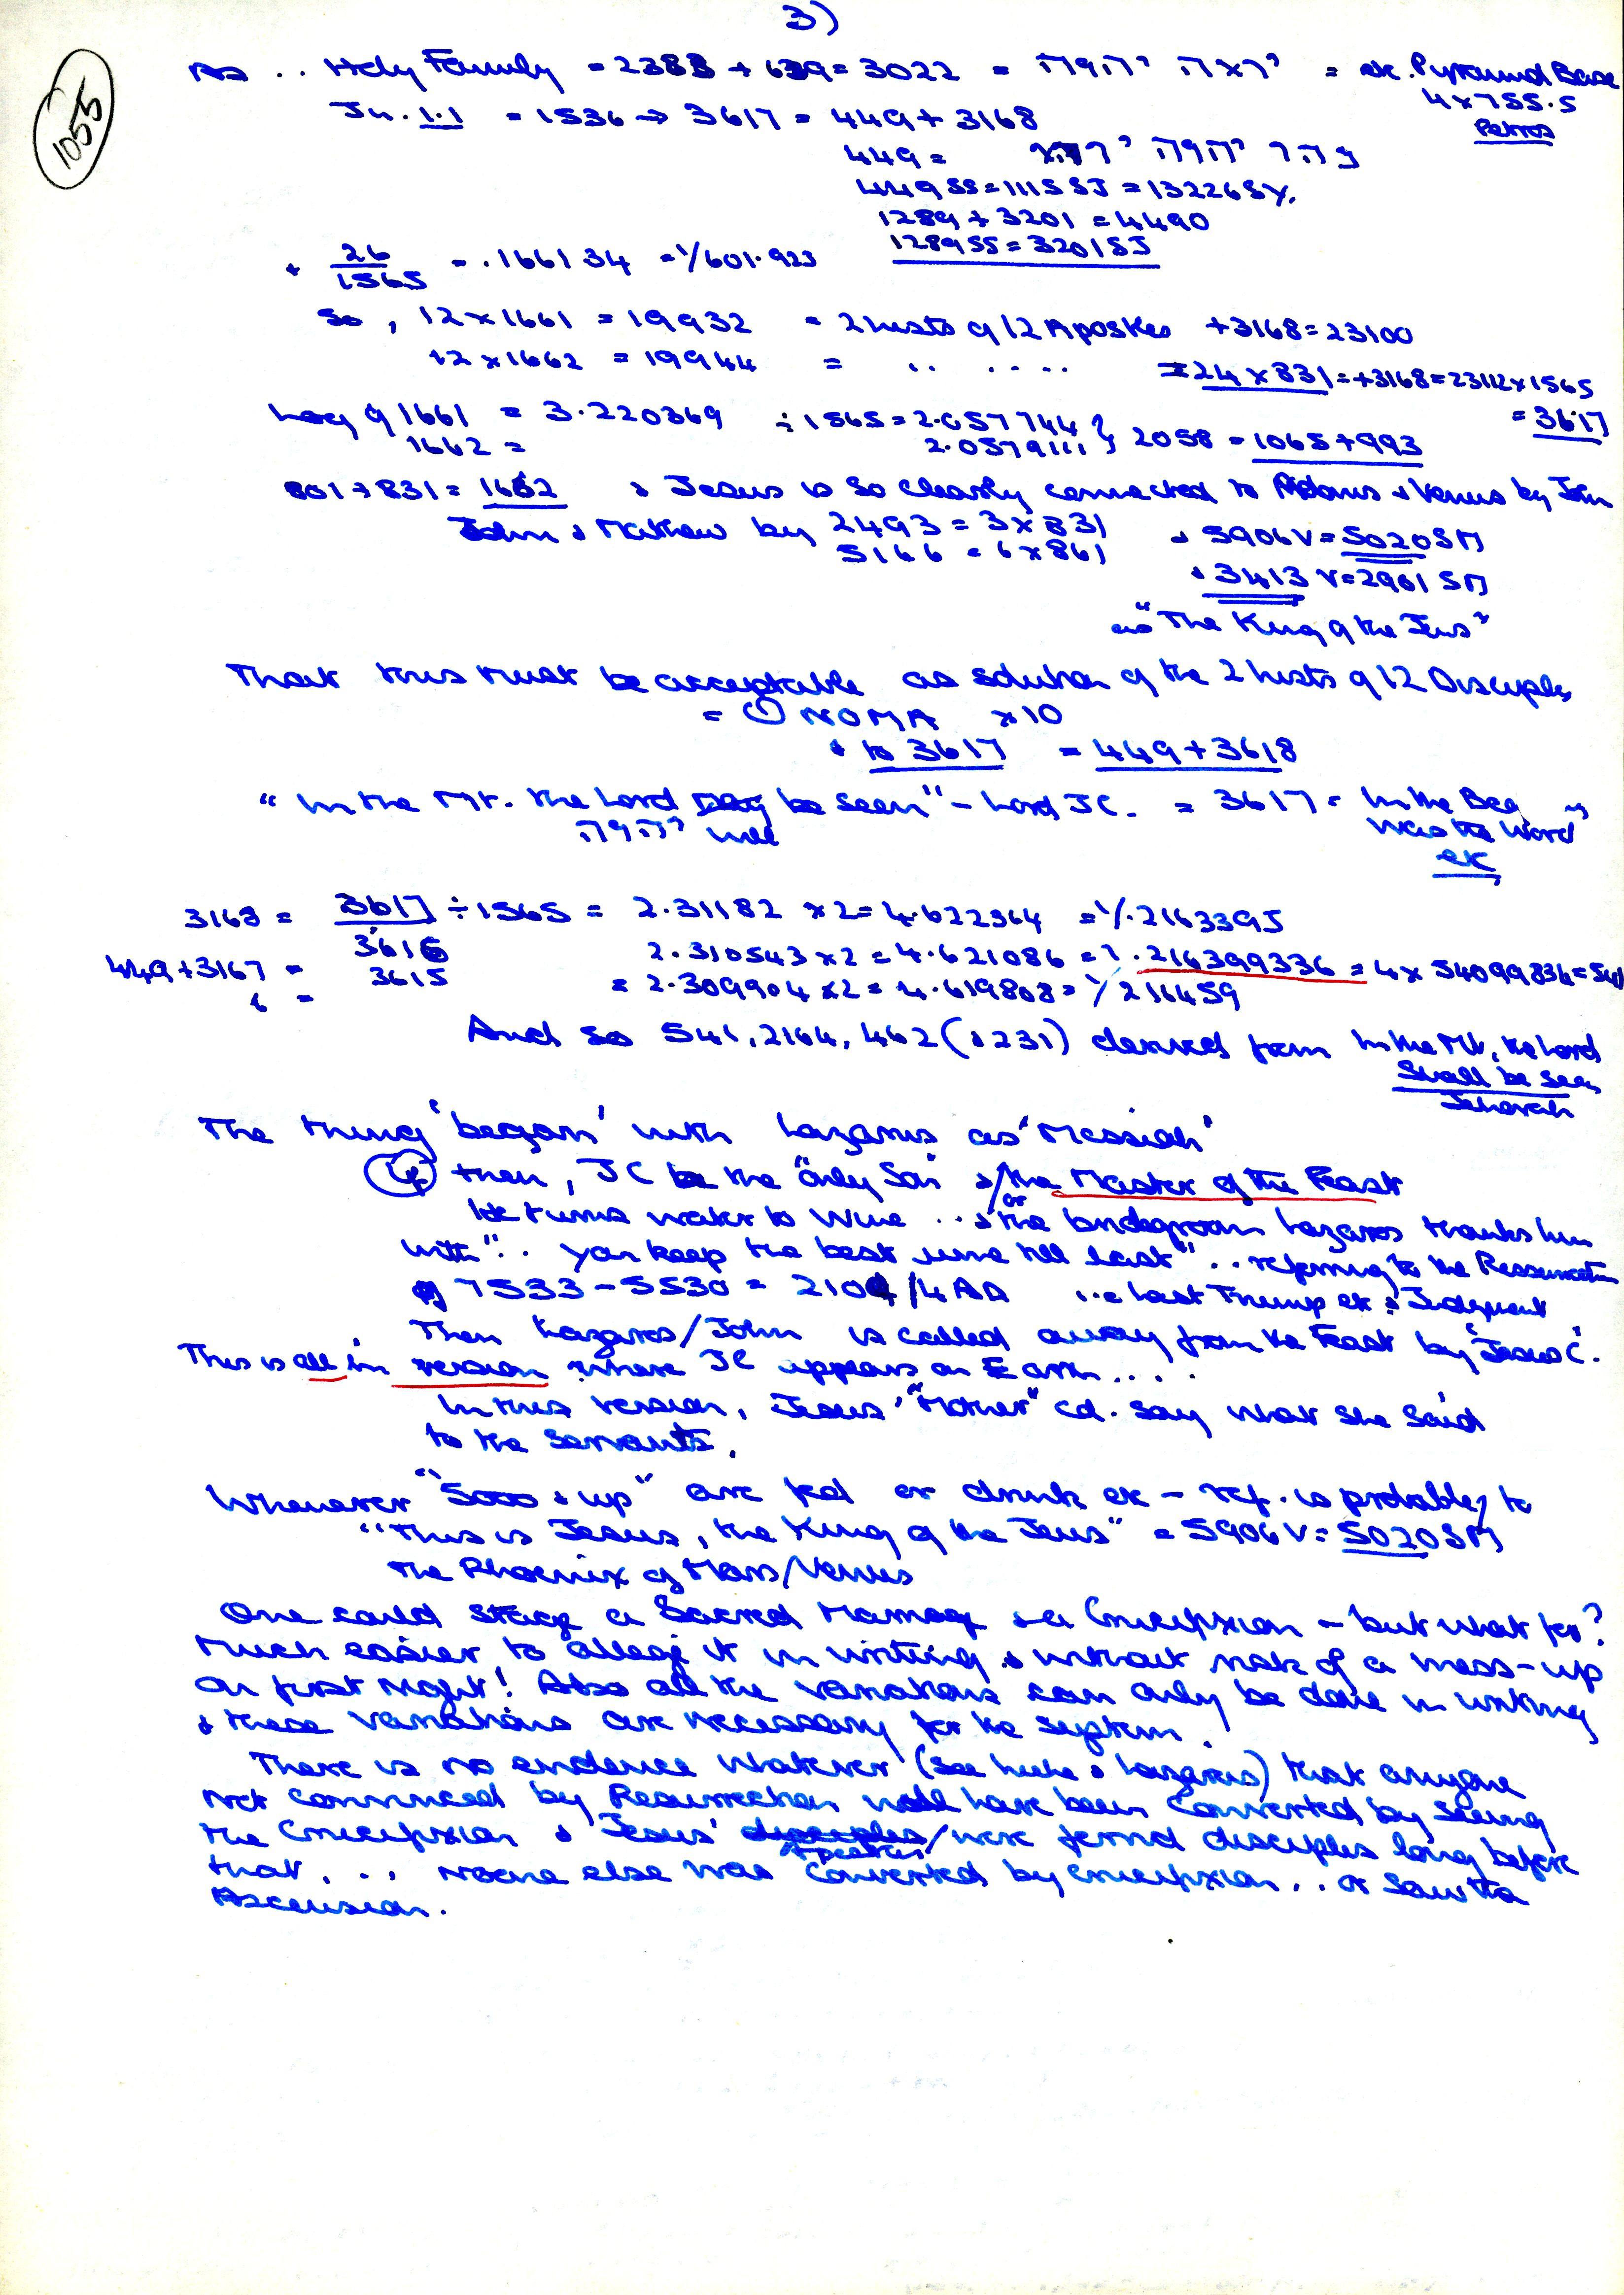 3)
1055
As .. Holy Family = 2383 + 639 = 3022 = יראה יהוה = etc. Pyramid Base
4 x 755.5
Petros
Jn. 1.1 = 1536 → 3617 = 449 + 3168
449 = בהר יהוה
449 SS = 1115 SJ = 13226 SY.
1289 + 3201 = 4490
1289 SS = 3201 SJ
+ 26/1565 = .166134 = 1/601.923
So, 12 x 1661 = 19932 = 2 lists of 12 Apostles + 3168 = 23100
12 x 1662 = 19944 = .. .... = 24 x 831 = + 3168 = 23112 x 1565
= 3617
Log of 1661 = 3.220369 ÷ 1565 = 2.057744 } 2058 = 1065 + 993
1662 = 2.0579111
801 + 831 = 1632 & Jesus is so clearly connected to Adonis & Venus by John
John & Mathew by 2493 = 3 x 831 & 5906 V = 5020 SM
5166 = 6 x 861
& 3413 V = 2901 SM
as "The King of the Jews"
That this must be acceptable as solution of the 2 lists of 12 Disciples
= ONOMA x 10
& to 3617 = 449 + 3618
"In the Mt. the Lord be seen" - Lord J C. = 3617 = In the Beg
יהוה will was the Word"
etc,
3168 = 3617 ÷ 1565 = 2.31182 x 2 = 4.622364 = 1/.2163395
3616 2.310543 x 2 = 4.621086 = 1.216399336 = 4 x 54099834 = 541
449 + 3167 =
6 = 3615 = 2.309904 x 2 = 4.619808 = 1/216459
And so 541, 2164, 462 (& 231) derived from In the Mt, the Lord
Shall be seen
Jehovah
The thing 'began' with Lazarus as 'Messiah'
If then, J C be the "Only Son" & / or the Master of the Feast
He turns water to Wine ... & the bridegroom Lazarus thanks him
with ".. you keep the best wine till last" .. referring to the Resurrection
of 7533 - 5530 = 2104 / 4 AD ... e last Trump etc & Judgment
Then Lazarus/John is called away from the Feast by 'Jesus C'.
This is all in version where JC appears on Earth....
In this version, Jesus' "Mother" cd. say what she said
to the servants.
Whenever "5000 & up" are fed or drunk etc - ref. is probably to
"This is Jesus, the King of the Jews" = 5906 V = 5020 SM
The Phoenix of Mars/Venus
One could stage a Sacred Marriage & a Crucifixion - but what for?
Much easier to allege it in writing & without risk of a mess-up
on first night! Also all the variations can only be done in writing
& these variations are necessary for the system.
There is no evidence whatever (see Luke & Lazarus) that anyone
not convinced by Resurrection will have been Converted by seeing
the Crucifixion & Jesus' disciples / Apostles were formd disciples long before
that, ... Noone else was converted by crucifixion .. or saw the
Ascension.